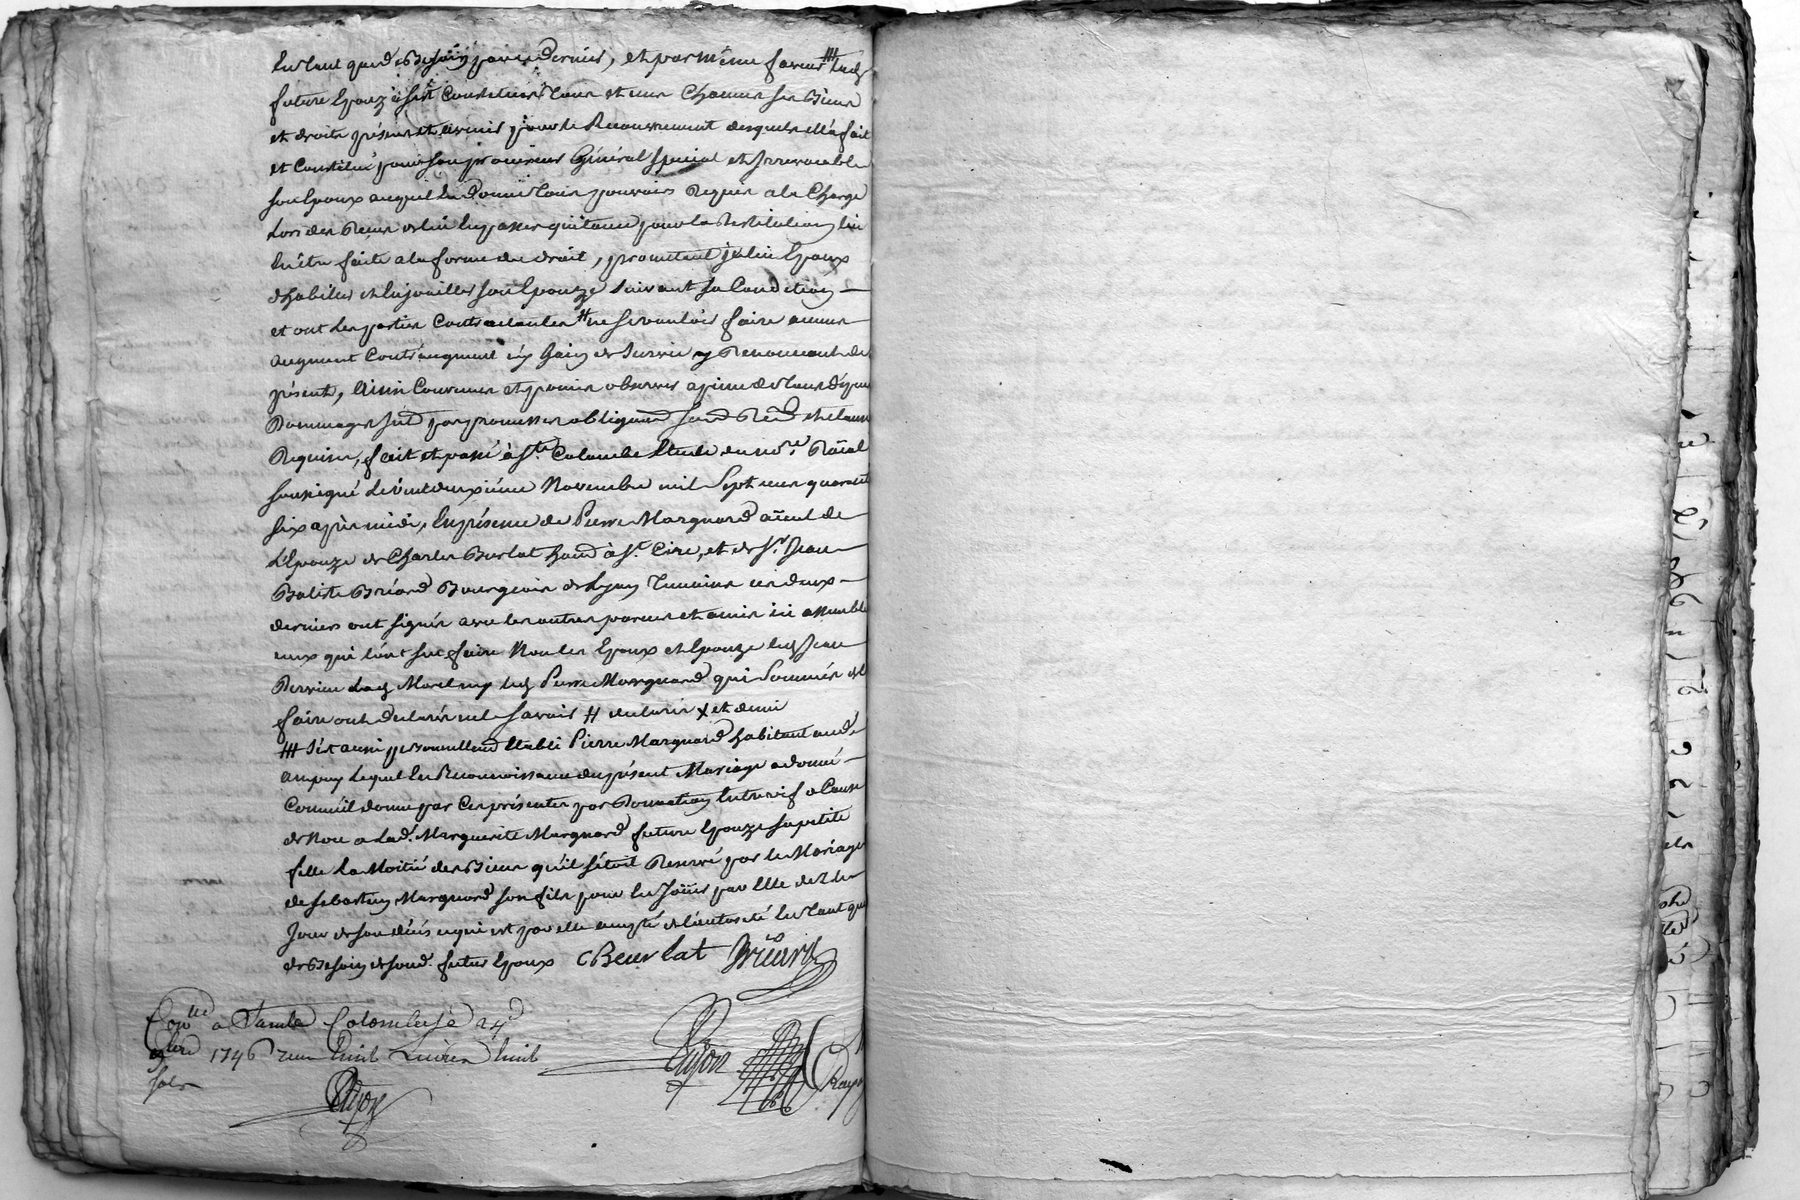 En tant que de Besoin par ce dernier, et par même faveur lad.
future Epouze s'est Constitué tous et uns Chacuns ses Biens
et droits présens et avenir pour le Recouvrement desquels elle a fait
et Constitué pour son procureur Général special et Irrevocable
son Epoux auquel Elle donne tous pouvoirs Requis a la Charge
Lors des Reçus de lui En passer quittance pour la Restitution lui
En être faite a la forme du droit, promettant led. Epoux
d'habiller et Enjoailler son Epouze suivant sa Condition
et ont les parties Contractantes # ne se vouloir faire aucun
augment Contr'augment ny Gain de Survie y Renonceant de
présent, Ainsi Convenu et promis observer a peine de tous dépens
Dommages par promesses obligeant
Requises, fait et passé à Ste. Colombe Etude du no.re Roïal
soussigné Le vint deuxiéme Novembre mil Sept cens quarante
six après midi, En présence de Pierre Marguard aïeul de
L'Epouze de Charles Burlat à St. Cire, et de Sr. Jean
Batiste Briard Bourgeois de Lyon Temoins ces deux
derniers ont signés avec les autres parens et amis ici assemblés
ceux qui l'ont sçu faire Non les Epoux et Epouze led. Jean
Perrier lad. led. Pierre Marguard qui Sommés de le
faire ont declarés ne le Savoir # declarés X et demi
S'est aussi personnellement Etabli Pierre Marguard habitant aud.
ampuy Lequel En Reconnoissance du présent Mariage a donné
Comme il donne par Ces présentes par Donnation Entre vif a Cause
de Noce a Lad. Marguerite Marguard future Epouze sa petite
fille La Moitié des Biens qu'il s'étoit Reservé par le Mariage
de Sebastien Marguard son fils pour En Joüir par Elle dez le
Jour de son décés ce qui est par elle accepté de l'autorité En tant que
de Besoin de sond. futur Epoux C Beurlat Briard
Con.lle a Sainte Colombe le 24e
9bre 1746 Reçu huit Livres huit
sols
Dijon
Dijon